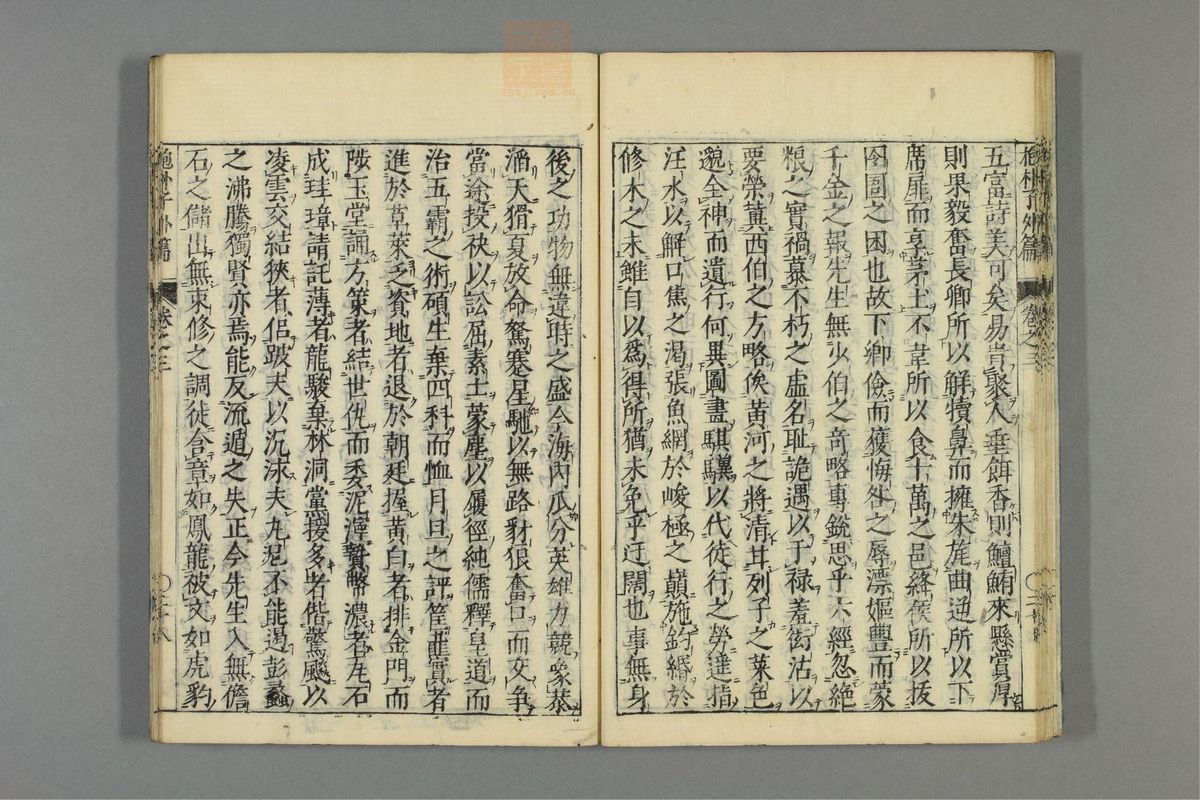 抱朴子外篇 卷之三
五富詩美可矣易貴聚人垂餌香則鱣鮪來懸賞厚
則果毅奮長卿所以解犢鼻而擁朱旄曲逆所以下
席扉而享茅土不韋所以食十萬之邑絳侯所以拔
囹圄之困也故下鄉儉而獲悔咎之辱漂嫗豐而蒙
千金之報先生無少伯之奇略專銳思乎六經忽絶
粮之實禍慕不朽之虛名耻詭遇以于禄羞衒沽以
要榮冀西伯之方略俟黄河之將清甘列子之菜色
邈全神而遺行何異圖畫騏驥以代徒行之勞遥指
汪水以解口焦之渴張魚網於峻極之巔施釣緡於
修木之末雖自以爲得所猶未免乎迂闊也事無身
後之功物無違時之盛今海内瓜分英雄力競象恭
滔天猾夏放命駑蹇星馳以無路豺狼奮口而交争
當途投袂以訟屈素士蒙塵以履徑純儒釋皇道而
治五霸之術碩生棄四科而恤月旦之評筐篚實者
進於草萊乏資地者退於朝廷握黄白者排金門而
陟玉堂誦方策者結世仇而委泥濘贄幣濃者瓦石
成珪璋請託薄者龍駿棄林洞黨援多者偕驚飈以
凌雲交結狹者侶跛夫以沉泳夫丸泥不能遏彭蠡
之沸騰獨賢亦焉能反流遁之失正今先生入無儋
石之儲出無束修之調徒含章如鳳龍被文如虎豹
抱朴子外篇 卷之三